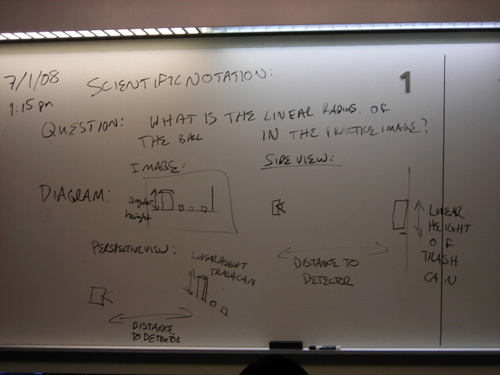 7/1/08
SCIENTIFIC NOTATION:
1
1:15 pm
QUESTION: WHAT IS THE LINEAR RADIUS OF
THE BALL IN THE PRACTICE IMAGE?
IMAGE:
SIDE VIEW:
DIAGRAM:
Angular
height
LINEAR
HEIGHT
OF
TRASH
CAN
PERSPECTIVE VIEW:
LINEAR HEIGHT
TRASH CAN
DISTANCE TO
DETECTOR
DISTANCE
TO DETECTOR